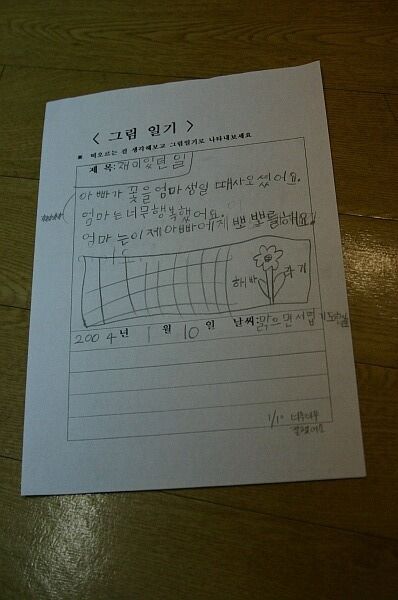 < 그림 일기 >
■ 떠오르는 걸 생각해보고 그림일기로 나타내보세요
제 목: 재미있던 일
아빠가 꽃을 엄마 생일 때 사오셨어요.
엄마는 너무 행복했어요.
엄마는 이제 아빠에게 뽀뽀를 해요!
해바라기
2004년 1월 10일 날씨: 맑으면서 춥
1/10 너무너무